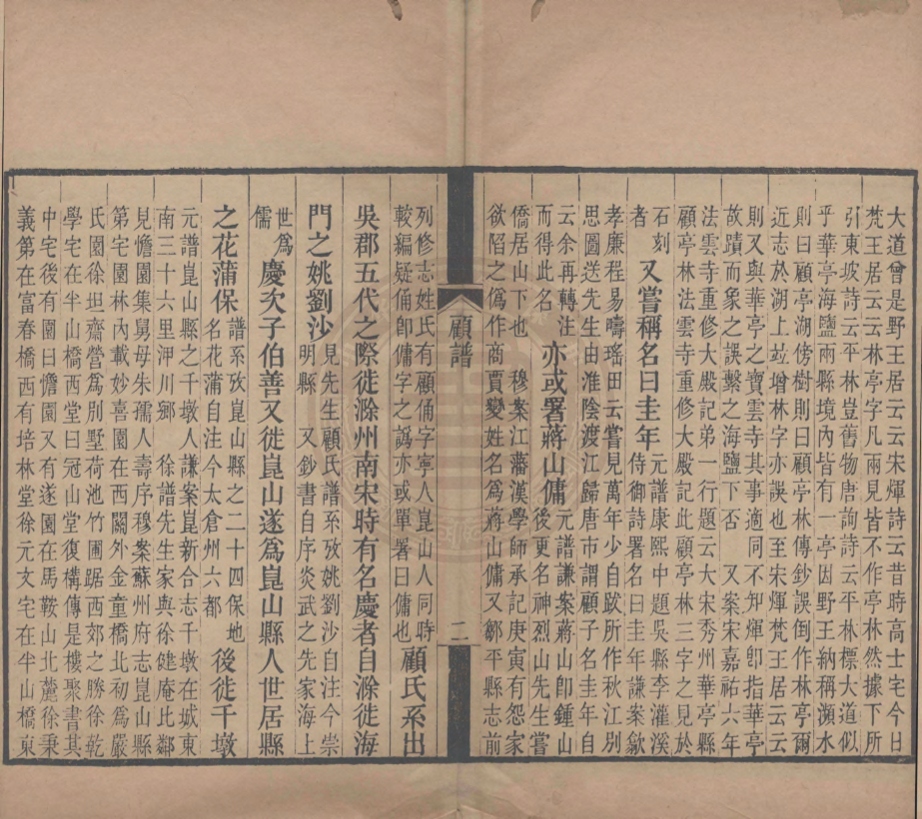 大道曾是野王居云云宋煇詩云昔時高士宅今日
梵王居云云林亭字凡兩見皆不作亭林然據下所
引東坡詩云平林豈舊物唐詢詩云平林標大道似
乎華亭海鹽兩縣境內皆有一亭因野王納稱瀕水
則曰顧亭湖傍樹則曰顧亭林傳鈔誤倒作林亭爾
近志於湖上竝增林字亦誤也至宋煇梵王居云云
則又與華亭之寶雲寺其事適同不知煇卽指華亭
故蹟而象之誤繫之海鹽下否　又案宋嘉祐六年
法雲寺重修大殿記弟一行題云大宋秀州華亭縣
顧亭林法雲寺重修大殿記此顧亭林三字之見於
石刻
又嘗稱名曰圭年
元譜康熙中題吳縣李灌溪
侍御詩署名曰圭年謙案歙
孝廉程易疇瑤田云嘗見萬年少自跋所作秋江別
思圖送先生由淮陰渡江歸唐市謂顧子名圭年自
云余再轉注
而得此名
亦或署蔣山傭
元譜謙案蔣山卽鍾山
後更名神烈山先生嘗
僑居山下也　穆案江藩漢學師承記庚寅有怨家
欲陷之僞作商賈變姓名爲蔣山傭又鄒平縣志前
顧譜
二
列修志姓氏有顧俑字寧人崑山人同時
較編疑俑卽傭字之譌亦或單署曰傭也
顧氏系出
吳郡五代之際徙滁州南宋時有名慶者自滁徙海
門之姚劉沙
見先生顧氏譜系攷姚劉沙自注今崇
明縣　又鈔書自序炎武之先家海上
世爲
儒
慶次子伯善又徙崑山遂爲崑山縣人世居縣
之花蒲保
譜系攷崑山縣之二十四保地
名花蒲自注今太倉州六都
後徙千墩
元譜崑山縣之千墩人謙案崑新合志千墩在城東
南三十六里浬川鄉　徐譜先生家與徐健庵比鄰
見憺園集舅母朱孺人壽序穆案蘇州府志崑山縣
第宅園林內載妙喜園在西關外金童橋北初爲嚴
氏園徐坦齋營爲別墅荷池竹圃踞西郊之勝徐乾
學宅在半山橋西堂曰冠山堂復構傳是樓聚書其
中宅後有園曰憺園又有遂園在馬鞍山北麓徐秉
義第在富春橋西有培林堂徐元文宅在半山橋東